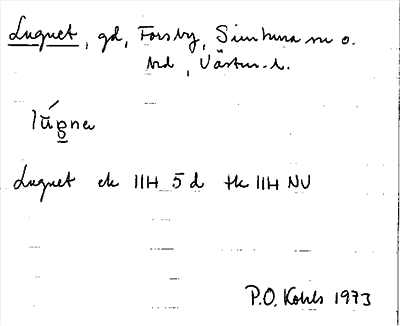 Lugnet, gd, Forsby, Simtuna sn o.
hd, Västm. l.
lúgna
Lugnet ek 11H 5 d tk 11H NV
P.O. Kohls 1973